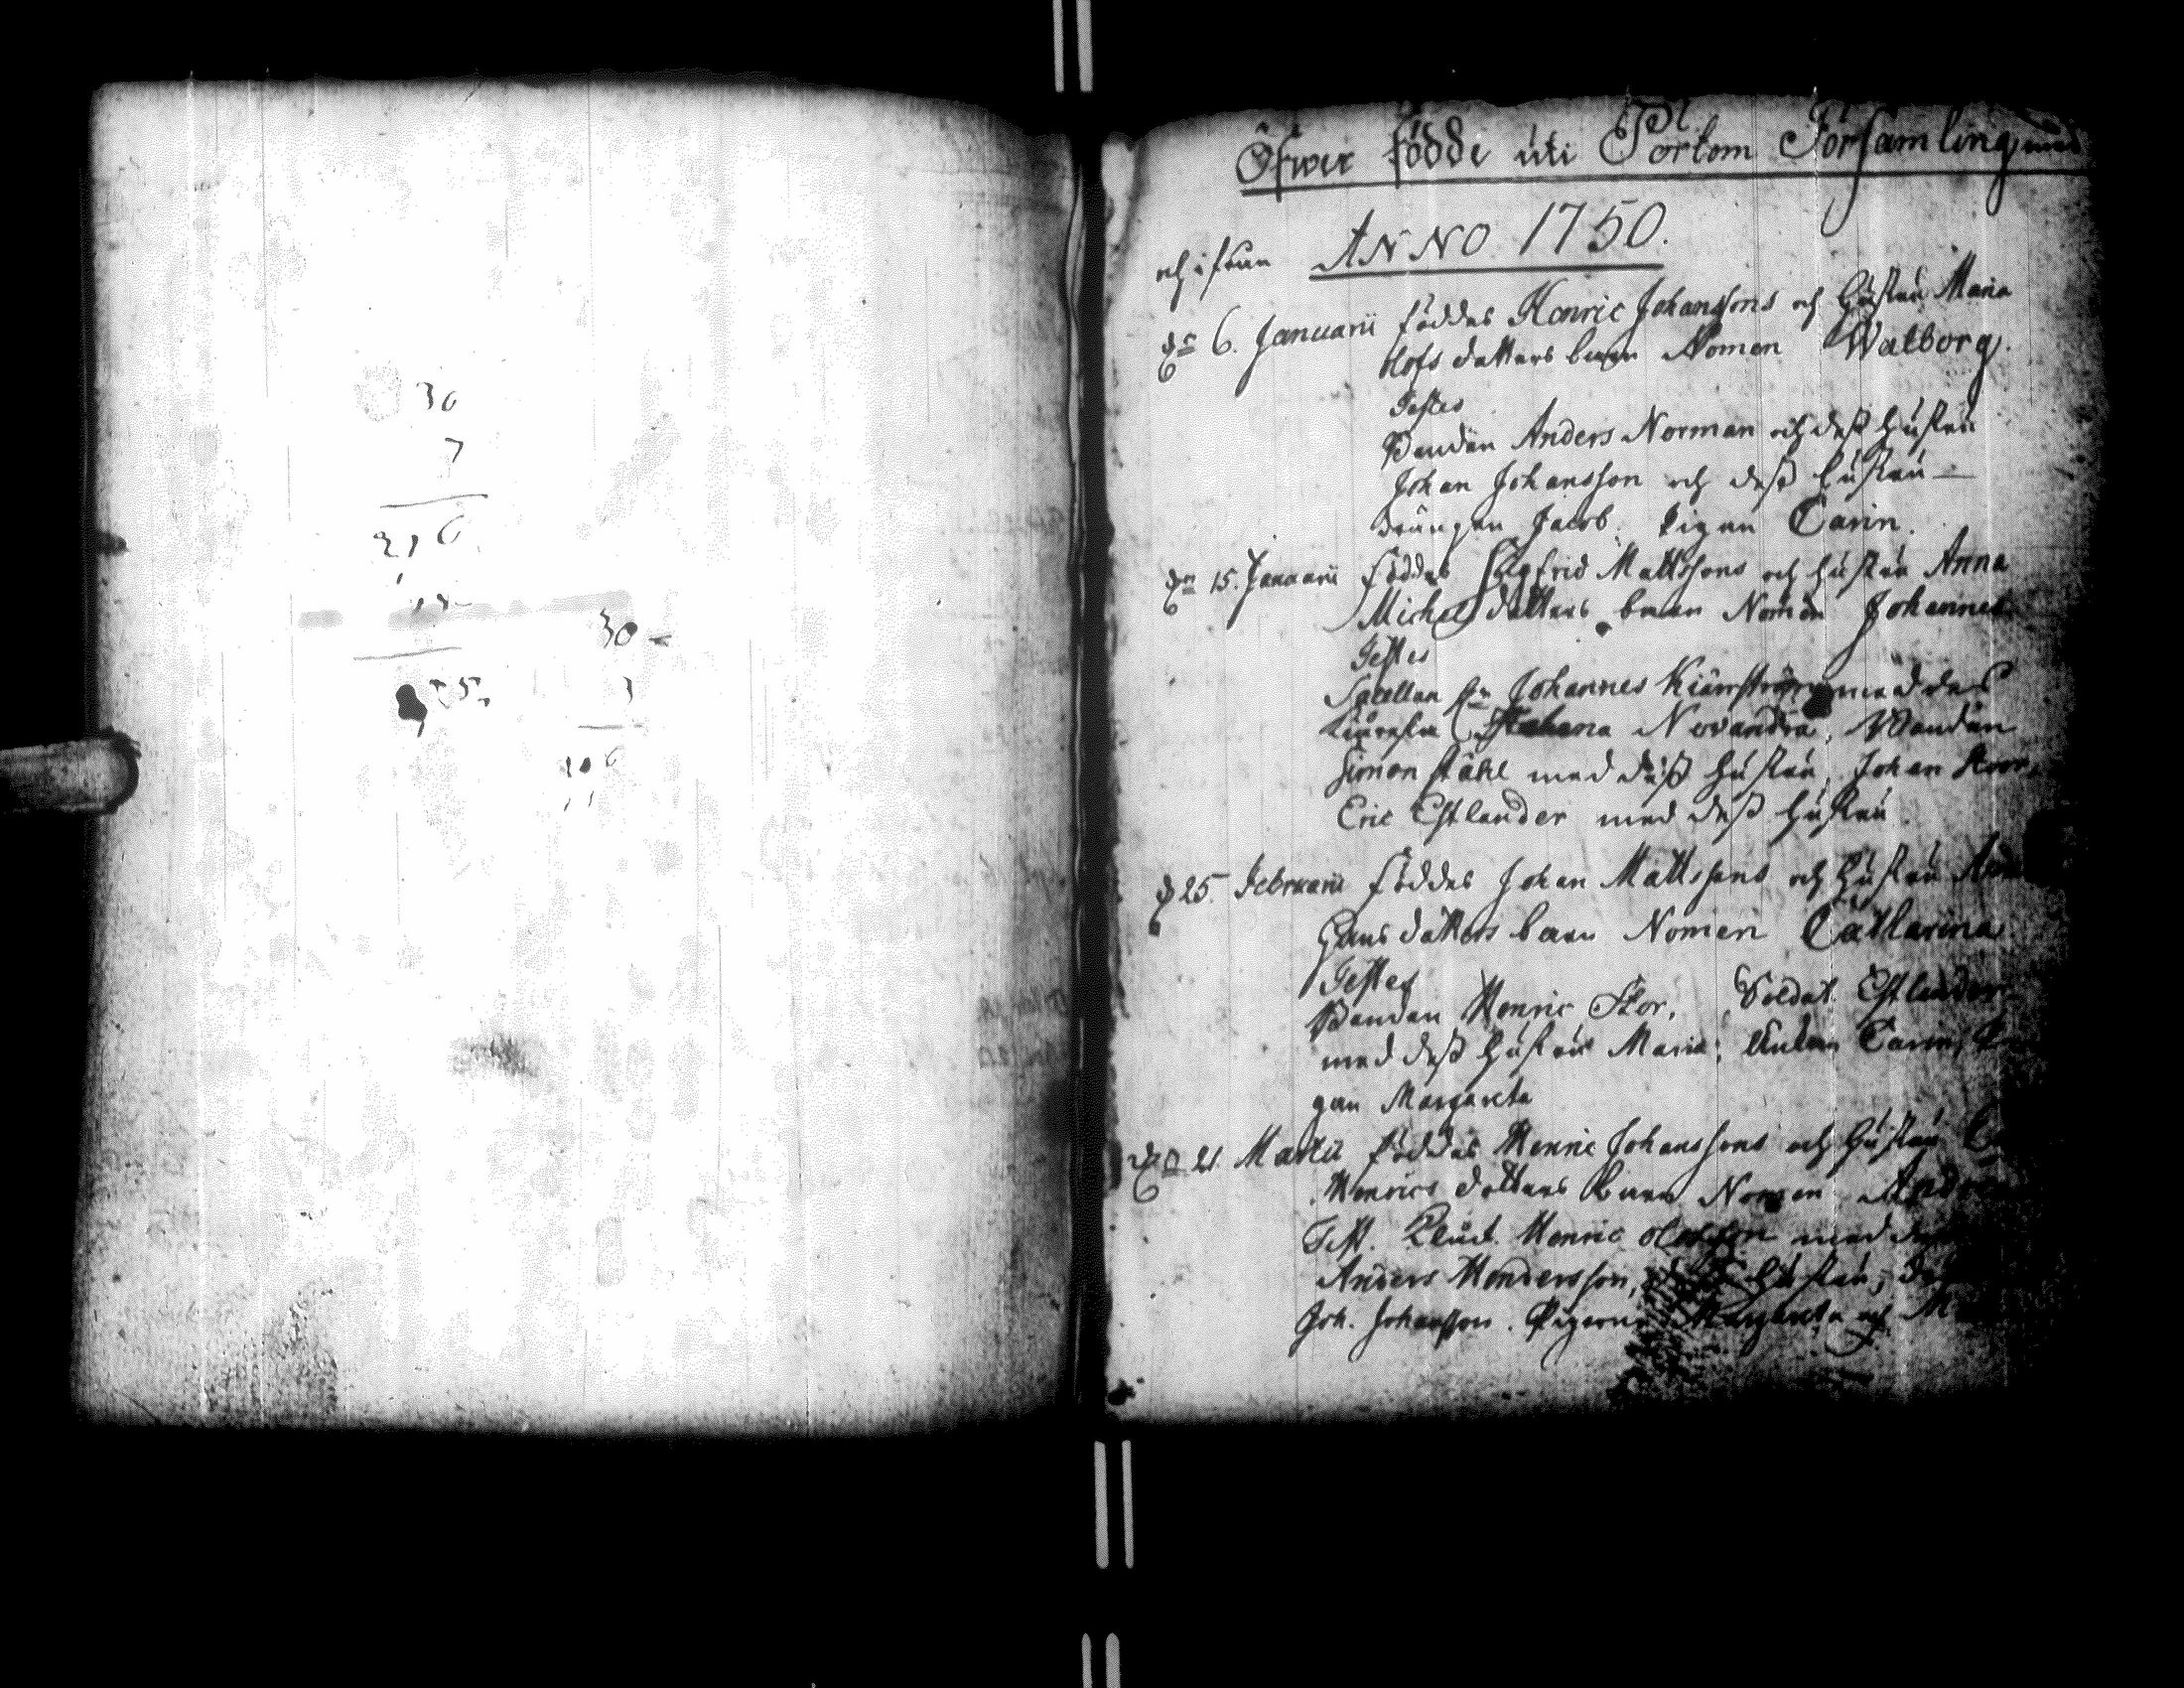 30
7
210
30
3
Öfwer födde uti Pörtom Församling med
och ifrån ANNO 1750.
dn 6. Januarii föddes Henric Johanssons och hustru Maria
Olofs dotters barn Nomen Walborg.
Testes
Bonden Anders Norman och dess hustru
Johan Johansson och dess hustru —
drängen Jacob. Pigan Carin.
dn 15. Januarii föddes Sigfrid Mattssons och hustru Anna
Michels dotters barn Nomen Johannes
Testes
Sacellan Hr Johannes med des
Novandra, Bonden
Simon ståhl med dess hustru, Johan Stoor,
Eric Estlander med dess hustru.
d 25. Februarii föddes Johan Mattssons och hustru
Hans dotters barn Nomen Catharina
Testes
Bonden Henric Stor, Soldat Estlander
med dess hustru Maria; Enkan Carin,
gan Margareta
dn 21. Martii föddes Henric Johanssons och hustru
Henrics dotters barn Nomen
Test. Henric Olofsson med
Anders Hendersson, hustru,
Joh. Johansson. Pigorna Margareta och